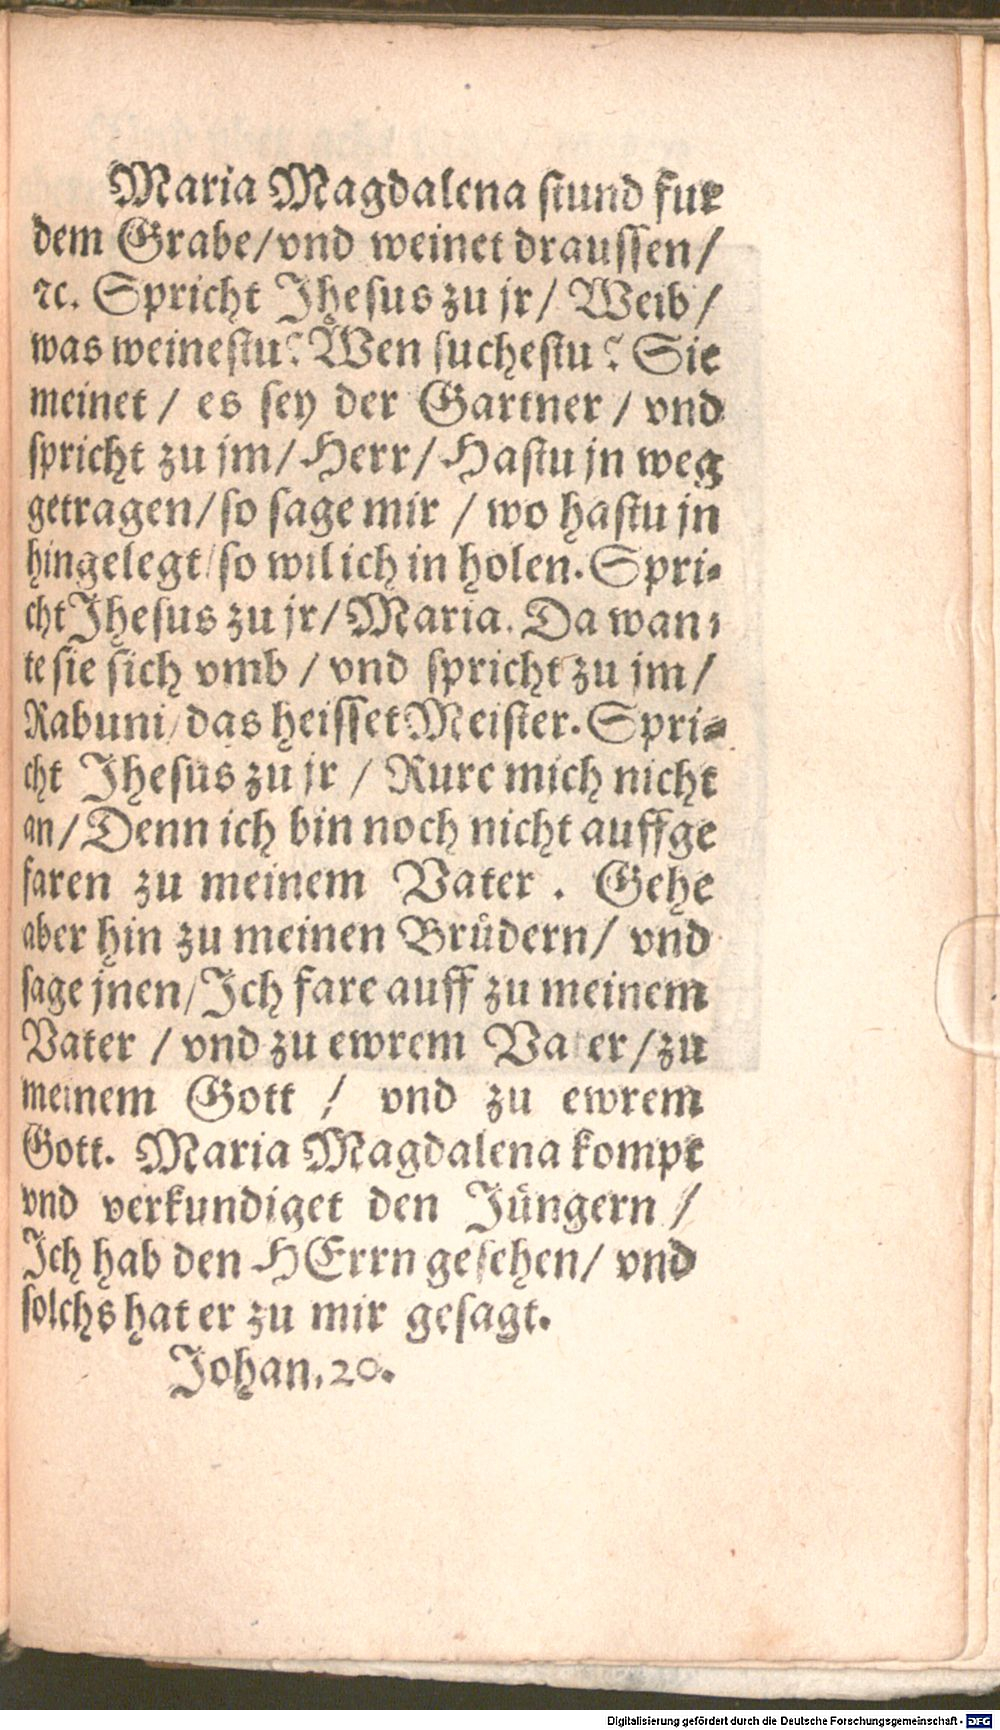 Maria Magdalena ſtund fur
dem Grabe/vnd weinet drauſſen/
ꝛc. Spricht Jheſus zu jr/ Weib/
was weineſtu? Wen ſucheſtu? Sie
meinet / es ſey der Gartner / vnd
ſpricht zu jm/ Herr/ Haſtu jn weg
getragen/ ſo ſage mir / wo haſtu jn
hingelegt/ ſo wil ich in holen. Spri⸗
cht Jheſus zu jr/ Maria. Da wan⸗
te ſie ſich vmb / vnd ſpricht zu jm/
Rabuni/ das heiſſet Meiſter. Spri⸗
cht Jheſus zu jr / Rure mich nicht
an/ Denn ich bin noch nicht auffge
faren zu meinem Vater . Gehe
aber hin zu meinen Brüdern/ vnd
ſage jnen/ Ich fare auff zu meinem
Vater / vnd zu ewrem Vater/ zu
meinem Gott / vnd zu ewrem
Gott. Maria Magdalena kompt
vnd verkundiget den Jüngern /
Ich hab den HErrn geſehen/ vnd
ſolchs hat er zu mir geſagt.
Johan. 20.
Digitalisierung gefördert durch die Deutsche Forschungsgemeinschaft - DFG